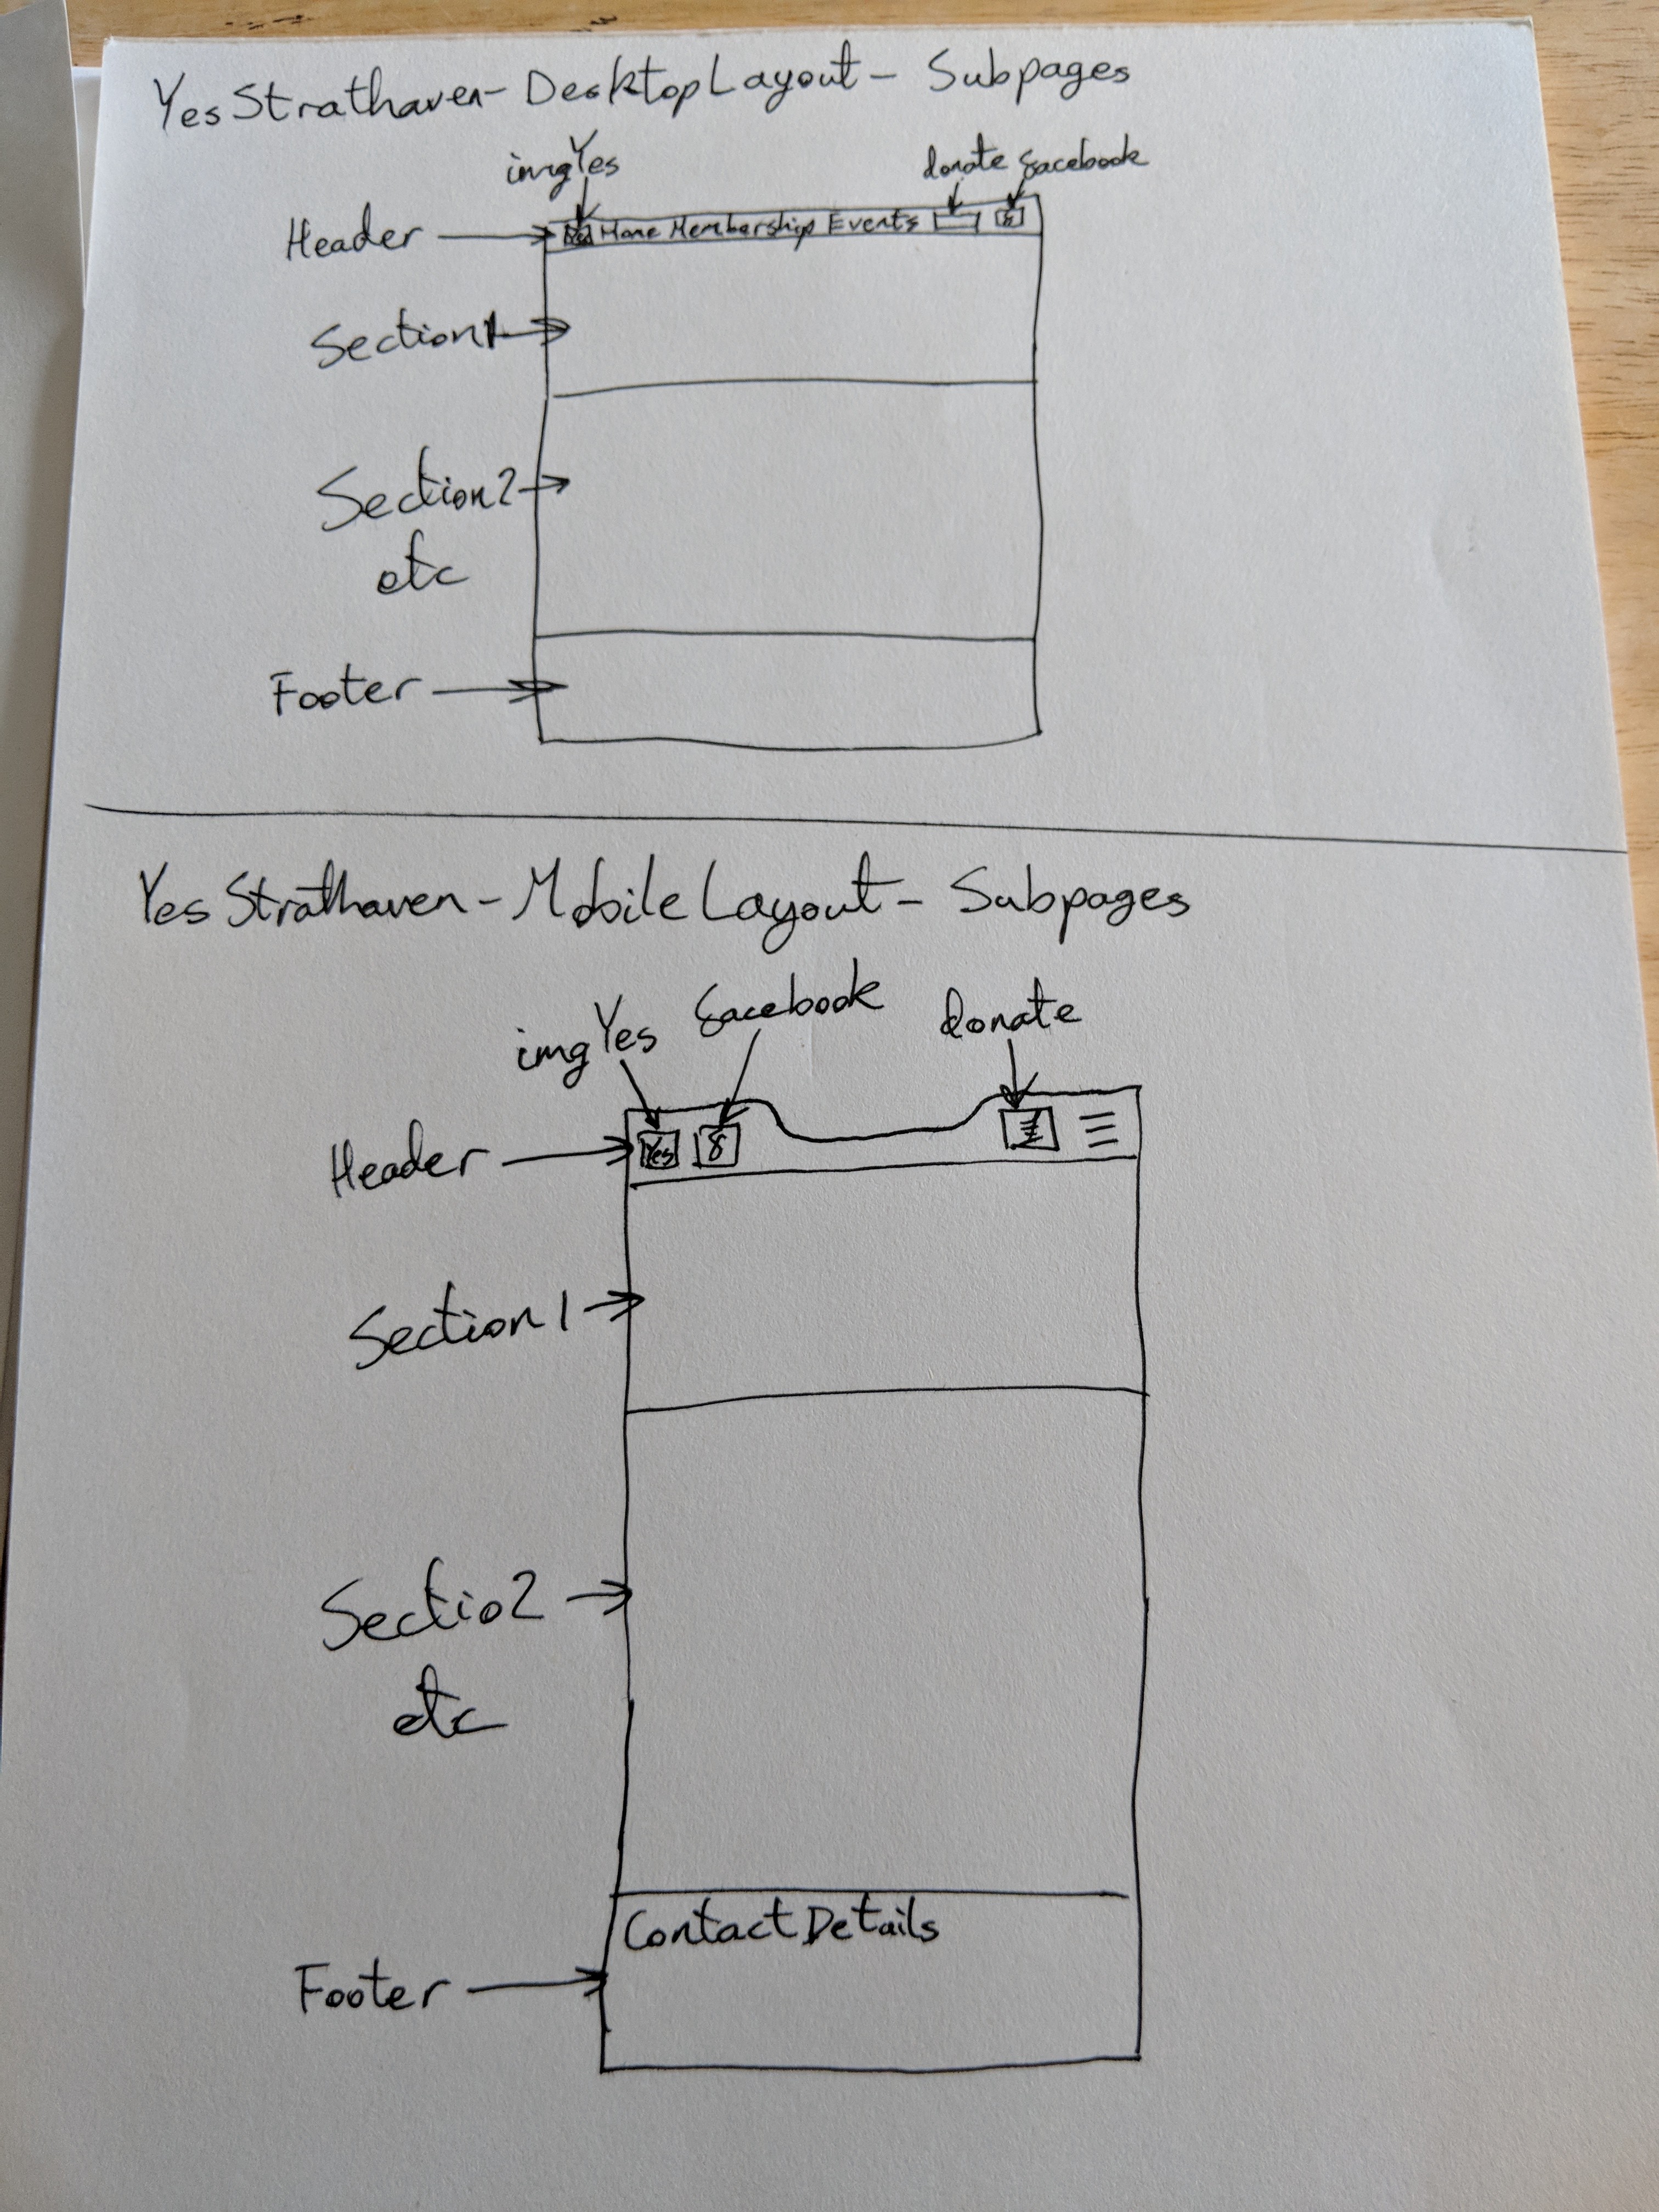 Yes Strathaven - Desktop Layout - Subpages
imgYes
donate facebook
Header
Yes Home Membership Events
Section1
Section2
etc
Footer
Yes Strathaven - Mobile Layout - Subpages
imgYes facebook donate
Header
Yes f
Section1
Sectio2
etc
Contact Details
Footer